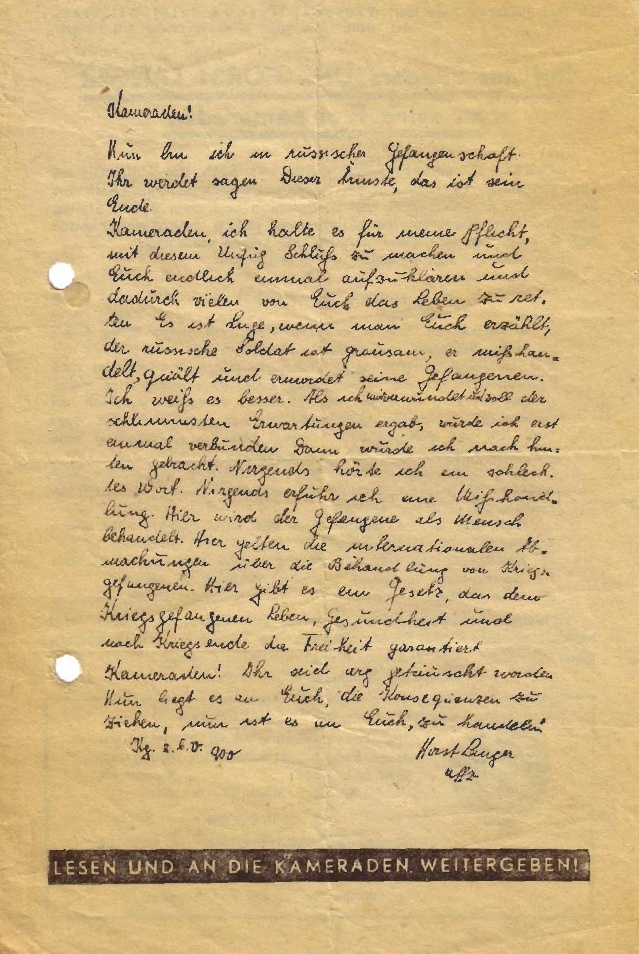 Kameraden!
Nun bin ich in russischer Gefangenschaft.
Ihr werdet sagen Dieser Ärmste, das ist sein
Ende.
Kameraden, ich halte es für meine Pflicht,
mit diesem Unfug Schluß zu machen und
Euch endlich einmal aufzuklären und
dadurch vielen von Euch das Leben zu ret-
ten Es ist Lüge, wenn man Euch erzählt,
der russische Soldat ist grausam, er mißhan-
delt, quält und ermordet seine Gefangenen.
Ich weiß es besser. Als ich mich verwundet und voll der
schlimmsten Erwartungen ergab, wurde ich erst
einmal verbunden Dann wurde ich nach hin-
ten gebracht. Nirgends hörte ich ein schlech-
tes Wort. Nirgends erfuhr ich eine Mißhand-
lung. Hier wird der Gefangene als Mensch
behandelt. Hier gelten die internationalen Ab-
machungen über die Behandlung von Kriegs-
gefangenen. Hier gibt es ein Gesetz, das dem
Kriegsgefangenen Leben, Gesundheit und
nach Kriegsende die Freiheit garantiert
Kameraden! Ihr seid arg getäuscht worden
Nun liegt es an Euch, die Konsequenzen zu
ziehen, nun ist es an Euch, zu handeln
Kg. z.b.V. 900 Horst
Uffz
LESEN UND AN DIE KAMERADEN WEITERGEBEN!